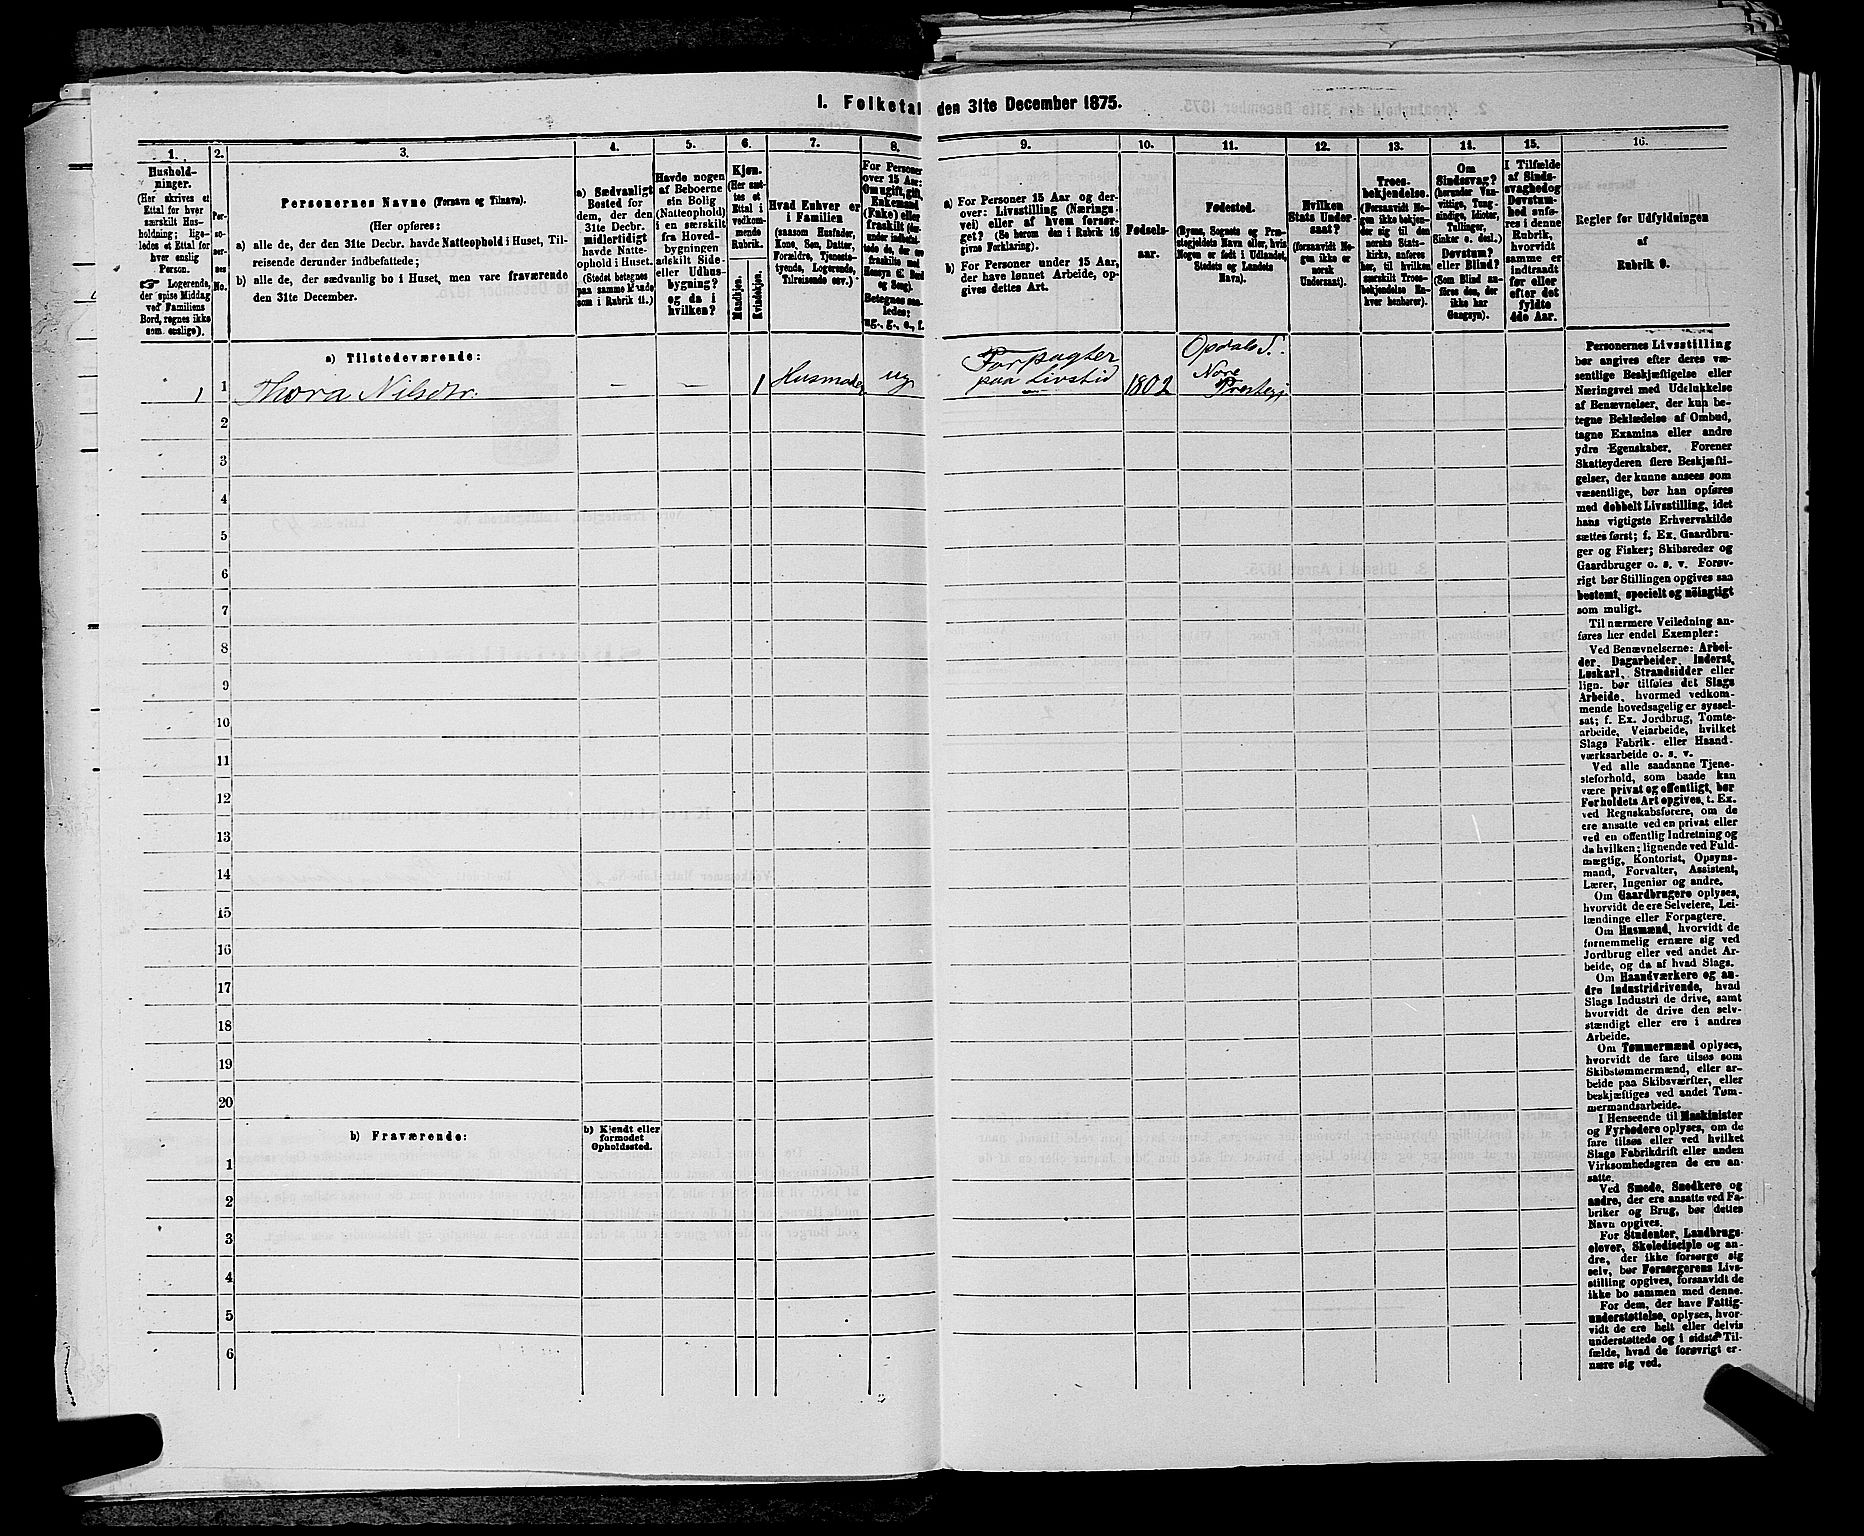 1. Folketal den 31te December 1875.
1. 2. 3. 4. 5. 6. 7. 8. 9. 10. 11. 12. 13. 14. 15. 16.
Hushold-
ninger.
(Her skrives et
Ettal for hver
særskilt Hus-
holdning; lige-
ledes et Ettal for
hver enslig
Person.
☞ Logerende,
der spise Middag
ved Familiens
Bord, regnes ikke
som enslige).
Per-
so-
ner-
nes
No.
Personernes Navne (Fornavn og Tilnavn).
(Her opføres:
a) alle de, der den 31te Decbr. havde Natteophold i Huset, Til-
reisende derunder indbefattede;
b) alle de, der sædvanlig bo i Huset, men vare fraværende
den 31te December.
a) Sædvanligt
Bosted for
dem, der den
31te Decbr.
midlertidigt
havde Natte-
ophold i Huset.
(Stedet betegnes
paa samme Maade
som i Rubrik 11.)
Havde nogen
af Beboerne
sin Bolig
(Natteophold)
i en særskilt
fra Hoved-
bygningen
adskilt Side-
eller Udhus-
bygning?
og da i
hvilken?
Kjøn.
(Her sæt-
tes et
Ettal i
vedkom-
mende
Rubrik.
Mandkjøn.
Kvindekjøn.
Hvad Enhver er
i Familien
(saasom Husfader,
Kone, Søn, Datter,
Forældre, Tjeneste-
tyende, Logerende,
Tilreisende osv.)
For Personer
over 15 Aar:
Om ugift, gift,
Enkemand
(Enke) eller
fraskilt
Betegnes saa-
ledes:
ug., g., e., f.
a) For Personer 15 Aar og der-
over: Livsstilling (Nærings-
vei) eller af hvem forsør-
get? (Se herom den i Rubrik 16
givne Forklaring).
b) For Personer under 15 Aar,
der have lønnet Arbeide, op-
gives dettes Art.
Fødsels-
aar.
Fødested.
(Byens, Sognets og Præ-
stegjeldets Navn eller, hvis
Nogen er født i Udlandet,
Stedets og Landets
Navn).
Hvilken
Stats Under-
saat?
(forsaavidt No-
gen ikke er
norsk
Undersaat).
Troes-
bekjendelse.
(Forsaavidt No-
gen ikke bekjen-
der sig til den
norske Stats-
kirke, anføres
her, til hvilken
særskilt Troes-
bekjendelse En-
hver henhører).
Om
Sindssvag?
(herunder Van-
vittige, Tung-
sindige, Idioter,
Tullinger,
Sinker o. desl.)
Døvstum?
eller Blind?
(Som Blind an-
føres den, der
ikke har
Gangsyn).
I Tilfælde
af Sinds-
svaghed og
Døvstum-
hed anfø-
res i denne
Rubrik,
hvorvidt
samme er
indtraadt
før eller
efter det
fyldte
4de Aar.
Regler for Udfyldningen
af
Rubrik 9.
a) Tilstedeværende:
1 1 Thora Nilsdtr. — — 1 Husmoder ug Forpagter Opdals S.
paa Livstid 1802 Nore
Prestegj
2
3
4
5
6
7
8
9
10
11
12
13
14
15
16
17
18
19
20
b) Fraværende:
b) Kjendt eller
formodet
Opholdssted.
1
2
3
4
5
6
Personernes Livsstilling
bør angives efter deres væ-
sentlige Beskjæftigelse eller
Næringsvei med Udelukkelse
af Benævnelser, der kun be-
tegne Beklædelse af Ombud,
tagne Examina eller andre
ydre Egenskaber. Forener
Skatteyderen flere Beskjæfti-
gelser, der kunne ansees som
væsentlige, bør han opføres
med dobbelt Livsstilling, idet
hans vigtigste Erhvervskilde
sættes først; f. Ex. Gaardbru-
ger og Fisker; Skibsreder og
Gaardbruger o. s. v. Forøv-
rigt bør Stillingen opgives saa
bestemt, specielt og nöiagtigt
som muligt.
Til nærmere Veiledning an-
føres her endel Exempler:
Ved Benævnelserne: Arbei-
der, Dagarbeider, Inderst,
Løskarl, Strandsidder eller
lign. bør tilføies det Slags
Arbeide, hvormed vedkom-
mende hovedsagelig er syssel-
sat; f. Ex. Jordbrug, Tomte-
arbeide, Veiarbeide, hvilket
Slags Fabrik- eller Haand-
værksarbeide o. s. v.
Ved alle saadanne Tjene-
steforhold, som baade kan
være privat og offentligt, bør
Forholdets Art opgives, t. Ex.
ved Regnskabsførere, om de
ere ansatte ved en privat eller
ved en offentlig Indretning og
da hvilken; lignende ved Fuld-
mægtig, Kontorist, Opsyns-
mand, Forvalter, Assistent,
Lærer, Ingeniør og andre.
Om Gaardbrugere oplyses,
hvorvidt de ere Selveiere, Lei-
lændinge eller Forpagtere.
Om Husmænd, hvorvidt de
fornemmelig ernære sig ved
Jordbrug eller ved andet Ar-
beide, og da af hvad Slags.
Om Haandværkere og an-
dre Industridrivende, hvad
Slags Industri de drive, samt
hvorvidt de drive den selv-
stændigt eller ere i andres
Arbeide.
Om Tømmermænd oplyses,
hvorvidt de fare tilsøs som
Skibstømmermænd, eller ar-
beide paa Skibsværfter, eller
beskjæftiges ved andet Tøm-
mermandsarbeide.
I Henseende til Maskinister
og Fyrbødere oplyses, om de
fare tilsøs eller ved hvilket
Slags Fabrikdrift eller anden
Virksomhedsgren de ere an-
satte.
Ved Smede, Snedkere og
andre, der ere ansatte ved Fa-
briker og Brug, bør dettes
Navn opgives.
For Studenter, Landbrugs-
elever, Skoledisciple og an-
dre, der ikke forsørge sig
selv, bør Forsørgerens Livs-
stilling opgives, forsaavidt de
ikke bo sammen med denne.
For dem, der have Fattig-
understøttelse, oplyses, hvor-
vidt de ere helt eller delvis
understøttede og i sidste Til-
fælde, hvad de forøvrigt er-
nære sig ved.